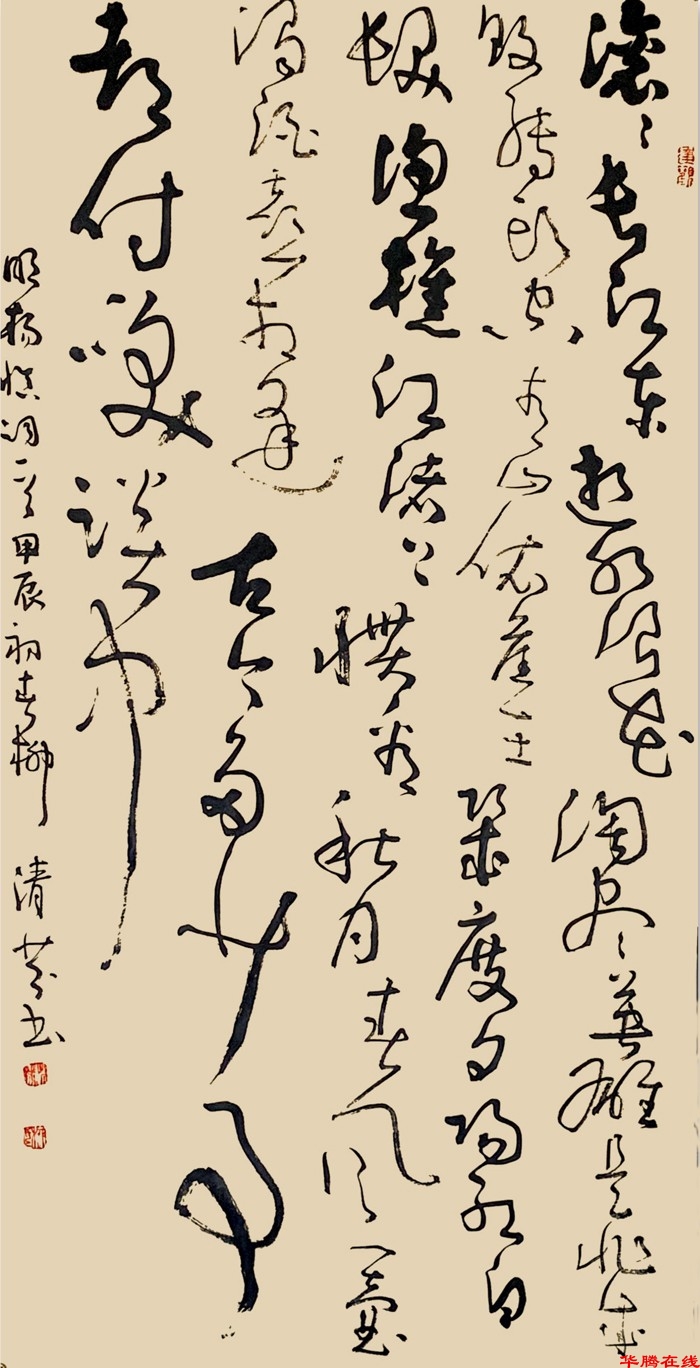 滚滚长江东逝水浪花淘尽英雄是非成
败转头空青山依旧在几度夕阳红白
发渔樵江渚上惯看秋月春风一壶
浊酒喜相逢古今多少事
都付笑谈中
明杨慎词一首甲辰初春柳清芬书
华腾在线